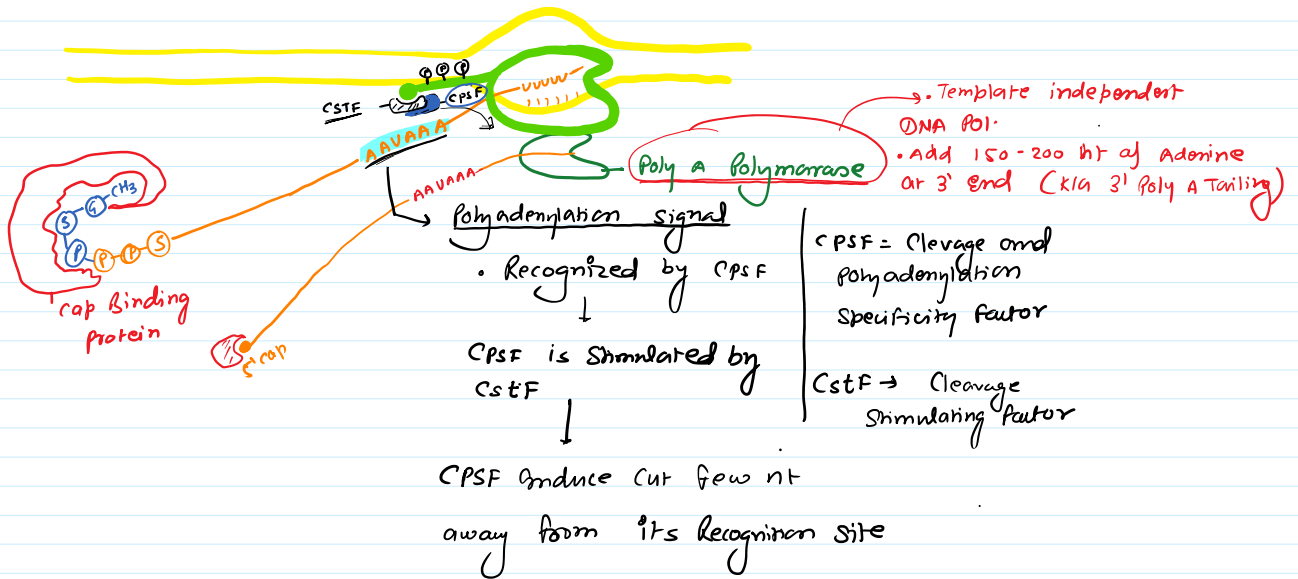 P P P
CSTF
CPSF
UUUUU
AAUAAA
AAUAAA
Poly A Polymarase
. Template independent
DNA Pol.
. Add 150-200 nt of Adenine
at 3' end (K/a 3' Poly A Tailing)
CH3
G
S
P P P S
Cap Binding
Protein
5' cap
Polyadenylation signal
. Recognized by CPSF
↓
CPSF is Stimulated by
CstF
↓
CPSF induce cut few nt
away from its Recognition site
CPSF = Clevage and
Polyadenylation
Specificity factor
CstF → Cleavage
Stimulating factor